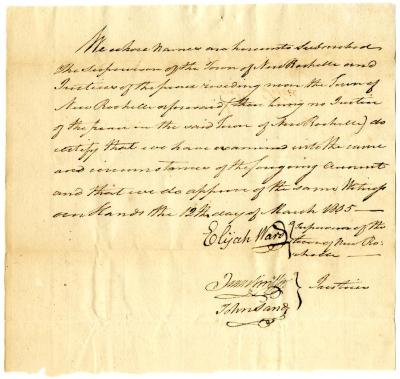 We whose names are hereunto Subscribed
The Supervisor of the Town of New Rochelle and
Justices of the peace residing near the Town of
New Rochelle aforesaid (there being no Justice
of the peace in the said Town of New Rochelle) do
certify that we have examined into the cause
and circumstances of the foregoing Account
and that we do approve of the same Witness
our Hands the 12th day of March 1805
Elijah Ward } Supervisor of the
town of New Ro-
chelle
John Sands } Justices